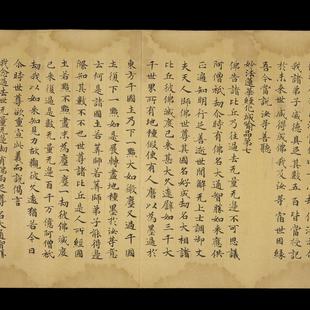 我諸弟子威德具足其數五百皆當授記
於未來世咸得成佛我及汝等宿世因緣
吾今當說汝等善聽
妙法蓮華經化城喻品第七
佛告諸比丘乃往過去無量無邊不可思議
阿僧祇劫尒時有佛名大通智勝如來應供
正遍知明行足善逝世間解無上士調御丈
夫天人師佛世尊其國名好成劫名大相諸
比丘彼佛滅度已來甚大久遠譬如三千大
千世界所有地種假使有人磨以為墨過於
東方千國土乃下一點大如微塵又過千國
土復下一點如是展轉盡地種墨於汝等意
云何是諸國土若筭師若筭師弟子能得邊
際知其數不不也世尊諸比丘是人所經國
土若點不點盡末為塵一塵一劫彼佛滅度
已來復過是數無量無邊百千萬億阿僧祇
劫我以如來知見力故觀彼久遠猶若今日
尒時世尊欲重宣此義而說偈言
我念過去世無量無邊劫有佛兩足尊名大通智勝